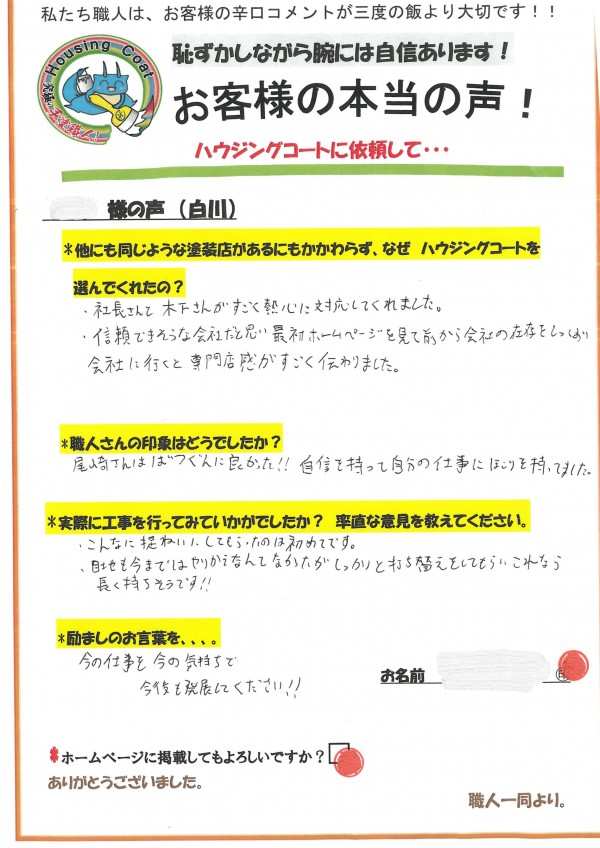 私たち職人は、お客様の辛口コメントが三度の飯より大切です！！
Housing Coat
恥ずかしながら腕には自信あります！
お客様の本当の声！
ハウジングコートに依頼して・・・
様の声（白川）
＊他にも同じような塗装店があるにもかかわらず、なぜ ハウジングコートを
選んでくれたの？
・社長さんと木下さんがすごく熱心に対応してくれました。
・信頼できそうな会社だと思い最初ホームページを見て前から会社の存在をしっており
会社に行くと専門店感がすごく伝わりました。
＊職人さんの印象はどうでしたか？
尾崎さんはばつぐんに良かった!! 自信を持って自分の仕事にほこりを持ってました。
＊実際に工事を行ってみていかがでしたか？ 率直な意見を教えてください。
・こんなに ていねいにしてもらったのは初めてです。
・目地も今まではやりかえなんてなかったがしっかりと打ち替えをしてもらいこれなら
長く持ちそうです!!
＊励ましのお言葉を、、、。
今の仕事を今の気持ちで
今後も発展してください!!
お名前
印
＊ホームページに掲載してもよろしいですか？
ありがとうございました。
職人一同より。